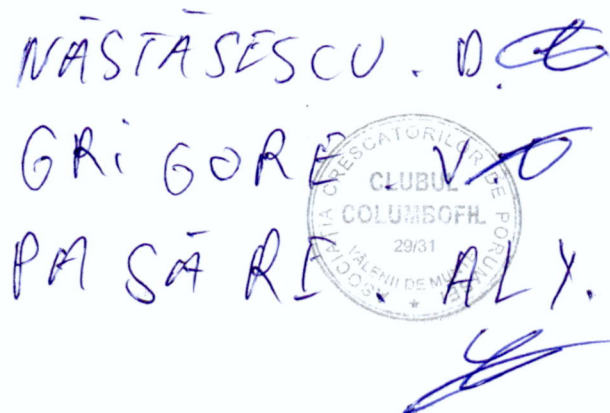 NĂSTĂSESCU . D.
GRIGORE . V.
PASĂRE . ALX.
ASOCIAȚIA CRESCATORILOR DE PORUMBEI
CLUBUL
COLUMBOFIL
29/31
VALENII DE MUNTE